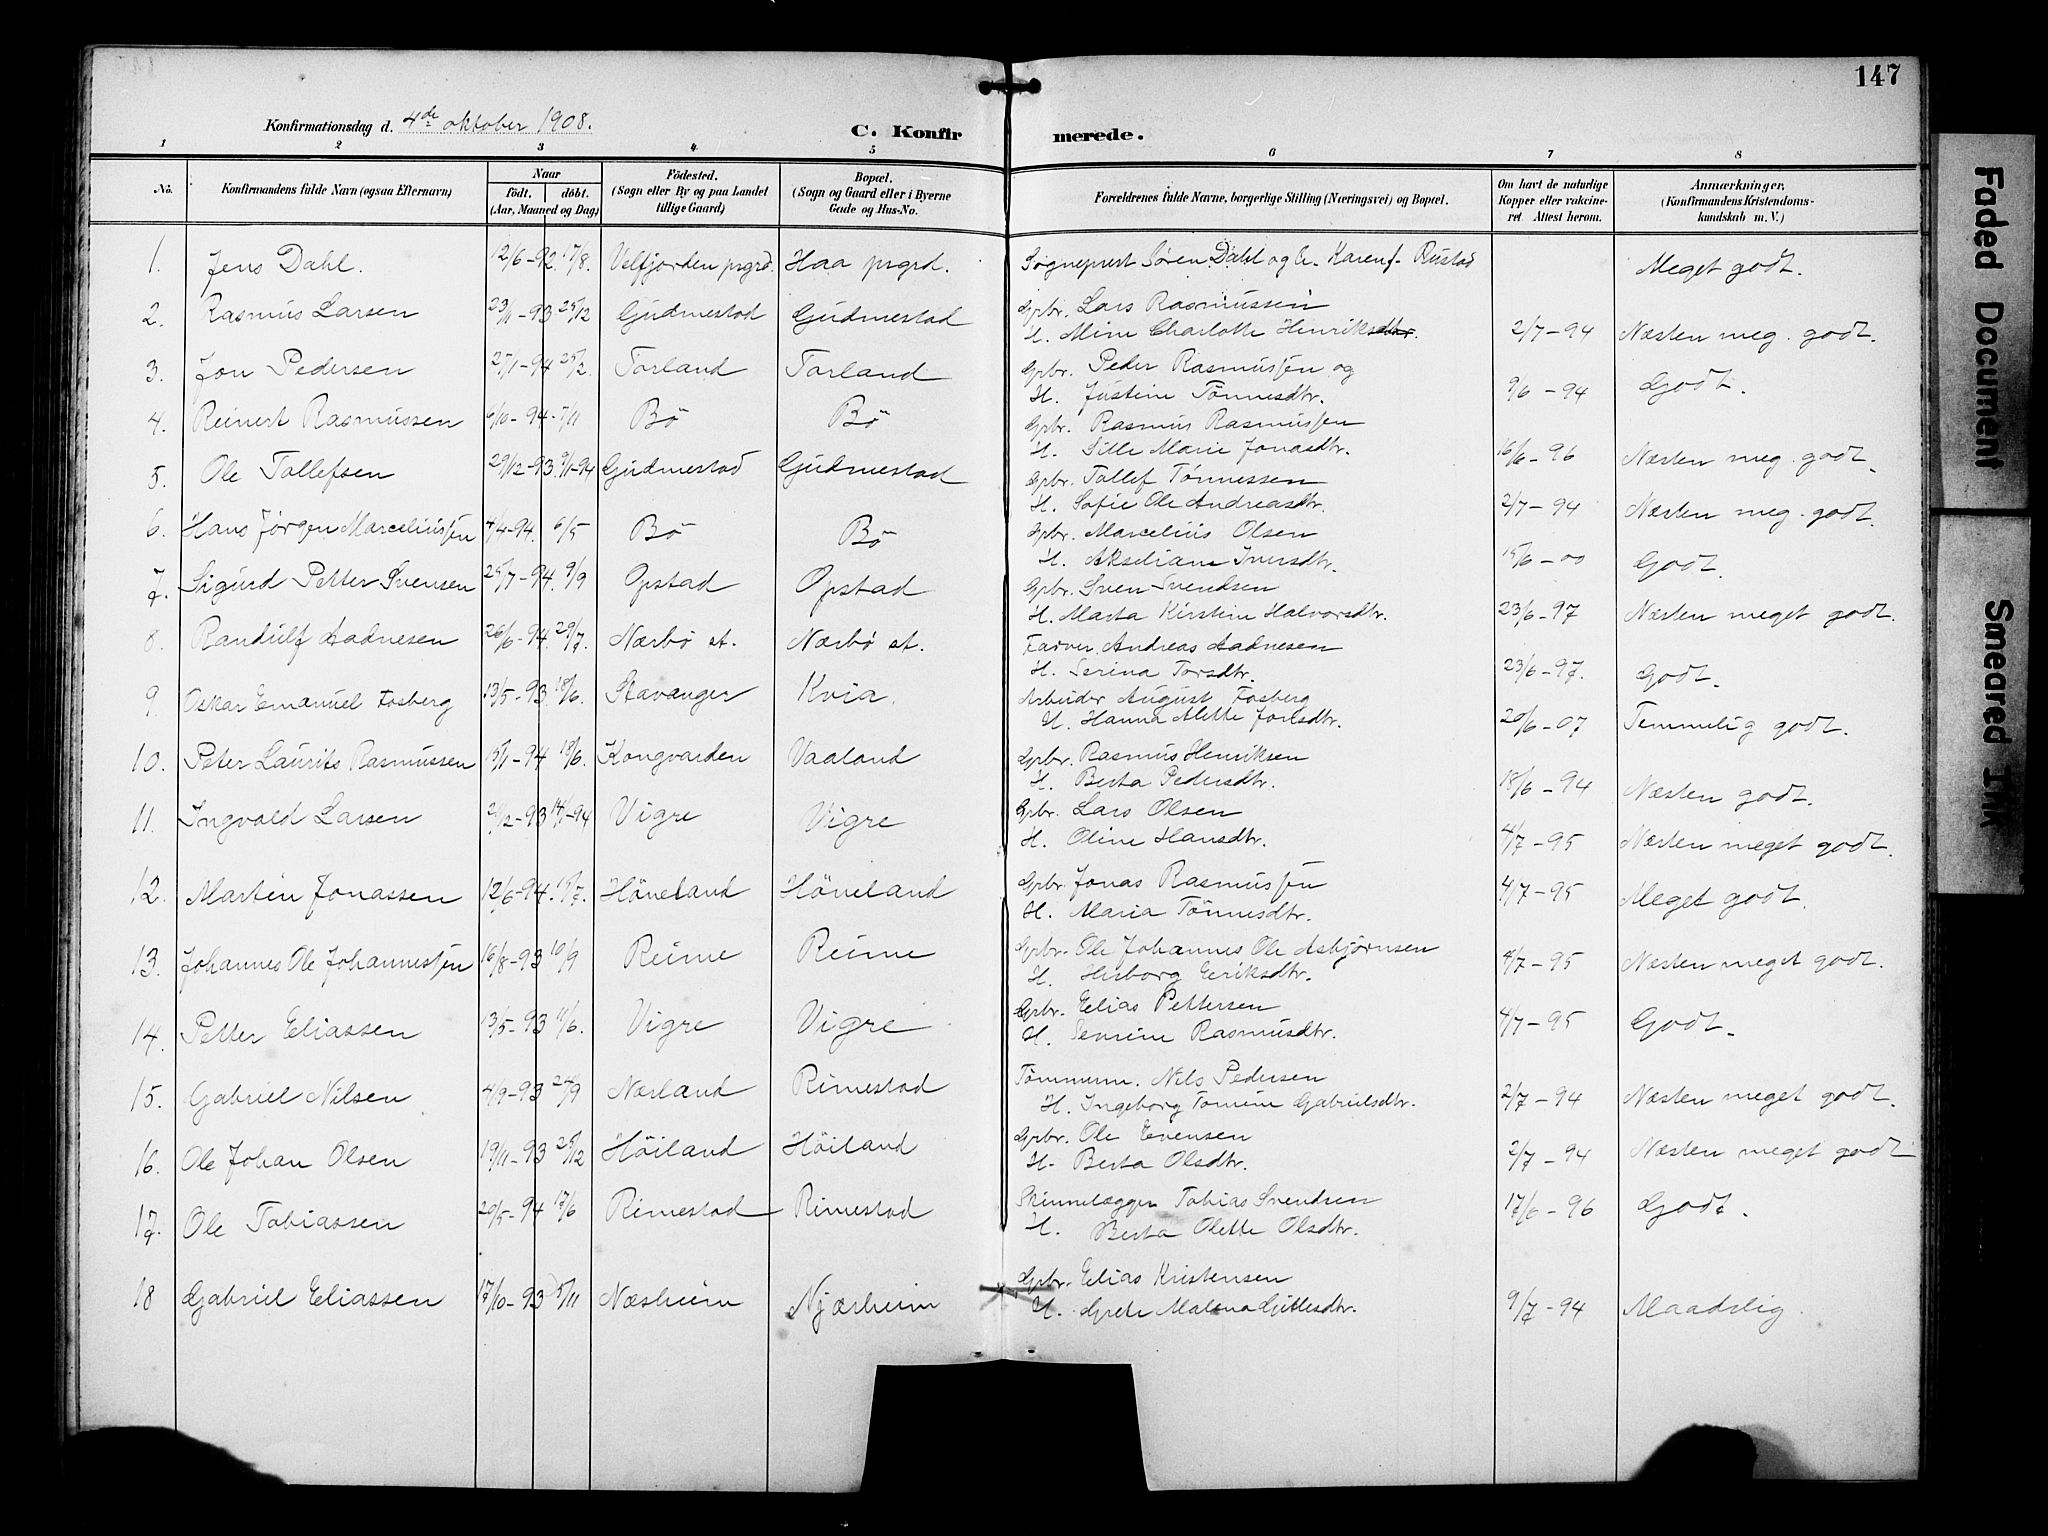 147
Konfirmationsdag d. 4de oktober 1908.
C. Konfirmerede.
1 2 3 4 5 6 7 8
No. Konfirmandens fulde Navn (ogsaa Efternavn) Naar født. døbt. (Aar, Maaned og Dag) Fødested. (Sogn eller By og paa Landet tillige Gaard) Bopæl. (Sogn og Gaard eller i Byerne Gade og Hus-No. Forældrenes fulde Navne, borgerlige Stilling (Næringsvei) og Bopæl. Om havt de naturlige Kopper eller vakcineret. Attest herom. Anmærkninger, (Konfirmandens Kristendomskundskab m. V.)
1. Jens Dahl. 12/6-92. 17/8. Velfjorden prgrd. Haa prgrd. Sogneprest Søren Dahl og Rustad Meget godt.
2. Rasmus Larsen 23/11-93 25/12 Gudmestad Gudmestad Gbr. Lars Rasmussen
H. Mine Charlotte Henriksdtr. 2/7-94 Næsten meg. godt.
3. Jon Pedersen 25/1-94 25/2. Torland Torland Gbr. Peder Rasmussen og
H. Justine Tønnesdtr. 9/6-94 Godt.
4. Reinert Rasmussen 6/10-94. 5/11 Bø Bø Gbr. Rasmus Rasmussen
H. Sille Marie Jonasdtr. 16/6-96 Næsten meg. godt.
5. Ole Tollefsen 29/12-93. 9/1-94 Gudmestad Gudmestad Gbr. Tollef Tønnessen
H. Sofie Ole Andreasdtr. 2/7-94 Næsten meg. godt.
6. Hans Jørgen Marceliussen 4/4-94. 6/5 Bø Bø Gbr. Marcelius Olsen
H. Akseliane Iversdtr. 15/6-00 Godt.
7. Sigurd Petter Svensen 25/7-94. 9/9 Opstad Opstad Gbr. Sven Svendsen
H. Marta Kirstine Halvorsdtr. 23/6-97 Næsten meget godt.
8. Randulf Aadnesen 26/6-94. 29/7. Nærbø st. Nærbø st. Farver Andreas Aadnesen
H. Serina Torsdtr. 23/6-97. Godt.
9. Oskar Emanuel Fosberg 13/5-93 18/6. Stavanger Kvia. Arbeider August Fosberg
H. Hanna Alette 20/6-07 Temmelig godt.
10. Peter Laurits Rasmussen 15/1-94 18/6. Kongvarden Vaaland Gbr. Rasmus Henriksen
H. Berta Pedersdtr. 18/6-94 Næsten godt.
11. Ingvald Larsen 21/12-93 14/1-94 Vigre Vigre Gbr. Lars Olsen
H. Oline Hansdtr. 4/7-95 Næsten meget godt.
12. Martin Jonassen 12/6-94. 15/7. Høneland Høneland Gbr. Jonas Rasmussen
H. Maria Tønnesdtr. 4/7-95 Meget godt.
13. Johannes Ole Johannessen 16/8-93 10/9 Reime Reime Gbr. Ole Johannes Ole Asbjørnsen
H. Herborg Eeriksdtr. 4/7-95 Næsten meget godt.
14. Petter Eliassen 13/5-93 11/6. Vigre Vigre Gbr. Elias Pettersen
H. Serine Rasmusdtr. 4/7-95 Godt.
15. Gabriel Nilsen 4/9-93 24/9 Nærland Rimestad Tømmerm. Nils Pedersen
H. Ingeborg Tomine Gabrielsdtr. 2/7-94 Næsten meget godt.
16. Ole Johan Olsen 19/11-93 25/12 Høiland Høiland Gbr. Ole Evensen
H. Berta Olsdtr. 2/7-94 Næsten meget godt
17. Ole Tobiassen 20/5-94 17/6 Rimestad Rimestad Skinnelægger Tobias Svendsen
H. Berta Olette Olsdtr. 17/6-96 Godt.
18 Gabriel Eliassen 17/10-93 5/11 Næsheim Njærheim Gbr. Elias Kristensen
H. Grete Malena Gittlesdtr. 9/7-94 Maadelig.
Faded Document
Smeared Ink